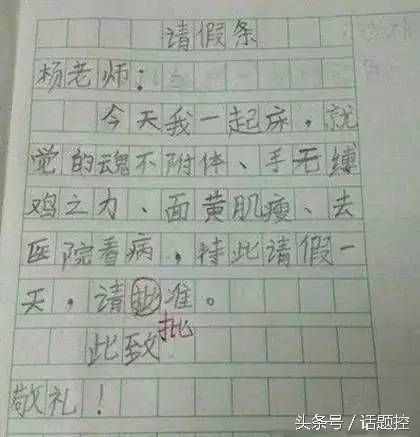 请假条
杨老师：
今天我一起床，就
觉的魂不附体、手无缚
鸡之力、面黄肌瘦、去
医院看病，特此请假一
天，请批准。
批
此致
敬礼！
头条号 / 话题控